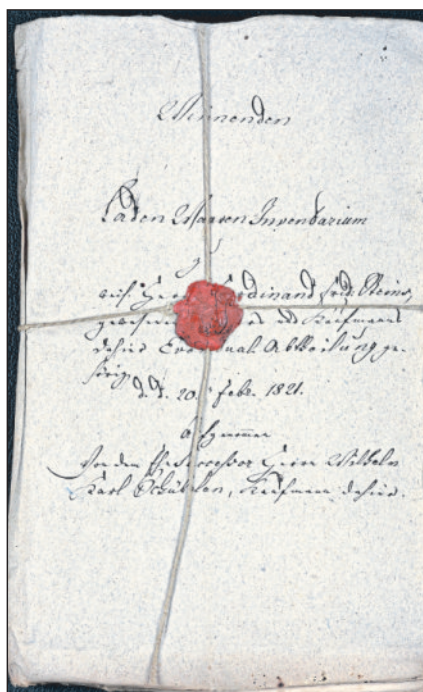 Winnenden
Laden Waaren Inventarium
auf Herrn Ferdinand Friedr. Steins,
gewesenen und Kaufmanns
dahier Eventual Abtheilung ge-
hörig
d. d. 20. Febr. 1821.
von dem Herrn Wilhelm
Karl Schüblen, Kaufmann dahier.